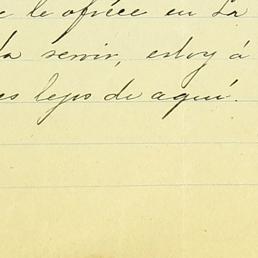 e le ofréce en La
da servir, estoy á
es lejos de aquí.